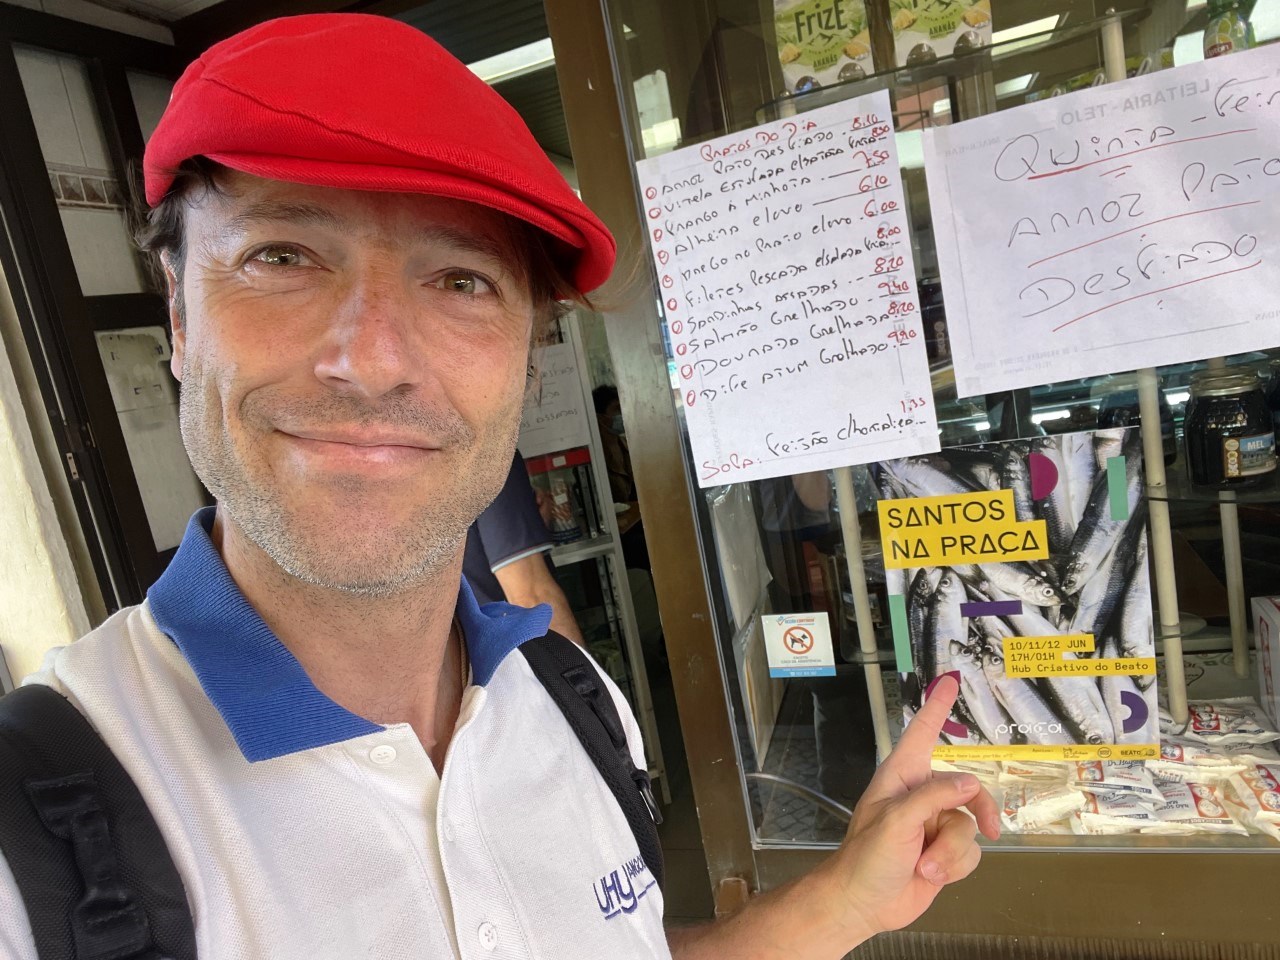 FRiZE
ANANÁS
FRiZE
ANANÁS
LEITARIA-TEJO
PRATOS DO DIA
ARROZ PATO DESFIADO 8,10
VITELA ESTUFADA 8,50
FRANGO À MINHOTA 7,50
ALHEIRA C/OVO 6,10
PREGO NO PRATO C/OVO. 6,00
FILETES PESCADA C/SALADA 8,00
SARDINHAS ASSADAS 8,20
SALMÃO GRELHADO 9,40
DOURADA GRELHADA 8,20
BIFE ATUM GRELHADO 9,90
SOPA: FEIJÃO C/HORTALIÇA 1,35
QUINTA-FEIR
ARROZ PATO
DESFIADO
MEL
SANTOS
NA PRAÇA
10/11/12 JUN
17H/01H
Hub Criativo do Beato
praça
BEATO
UHY